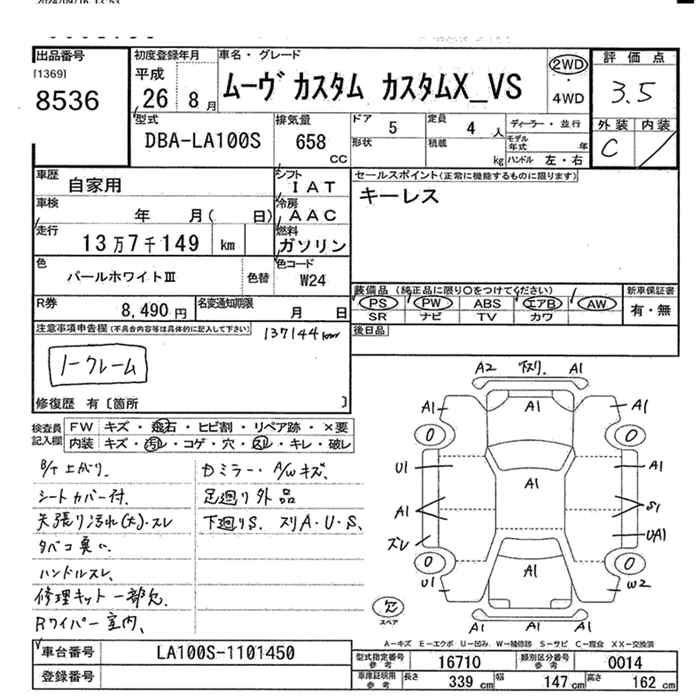 出品番号
[1369]
8536
初度登録年月
平成
26年 8月
車名・グレード
ムーヴ カスタム カスタムX_VS
2WD
4WD
評価点
3.5
外装 内装
C
型式
DBA-LA100S
排気量
658
CC
ドア 5
形状
定員 4人
積載 kg
ディーラー・並行
モデル年式 年
ハンドル 左・右
車歴 自家用
車検 年 月( 日)
走行 13万7千149 km
シフト IAT
冷房 AAC
燃料 ガソリン
セールスポイント(正常に機能するものに限ります)
キーレス
色 パールホワイトⅢ
色替
色コード W24
R券 8,490円
名変通知期限 月 日
装備品 (純正品に限り○をつけてください)
PS PW ABS エアB AW
SR ナビ TV カワ
新車保証書
有・無
後日品
注意事項申告欄(不具合内容等は具体的に記入して下さい)
137144km
ノークレーム
修復歴 有〔箇所 〕
検査員記入欄
FW キズ・飛石・ヒビ割・リペア跡・×要
内装 キズ・汚レ・コゲ・穴・スレ・キレ・破レ
B/T上がり、
シートカバー付、
天張り汚れ(大)・スレ
タバコ臭い、
ハンドルスレ、
修理キット一部欠、
Rワイパー室内、
Dミラー・A/Wキズ、
足廻り外品
下廻りS、スリA・U・S、
A2 下スリ A1
A1 A1 A1
0 0
U1 A1 A1
A1 A1 S1
ズレ UA1
0 0
U1 A1 W2
A1 A1
欠
スペア
A-キズ E-エクボ U-凹み W-補修跡 S-サビ C-腐食 XX-交換済
車台番号 LA100S-1101450
登録番号
型式指定番号 参考 16710
類別区分番号 参考 0014
車庫証明用 参考 長さ 339cm 幅 147cm 高さ 162cm